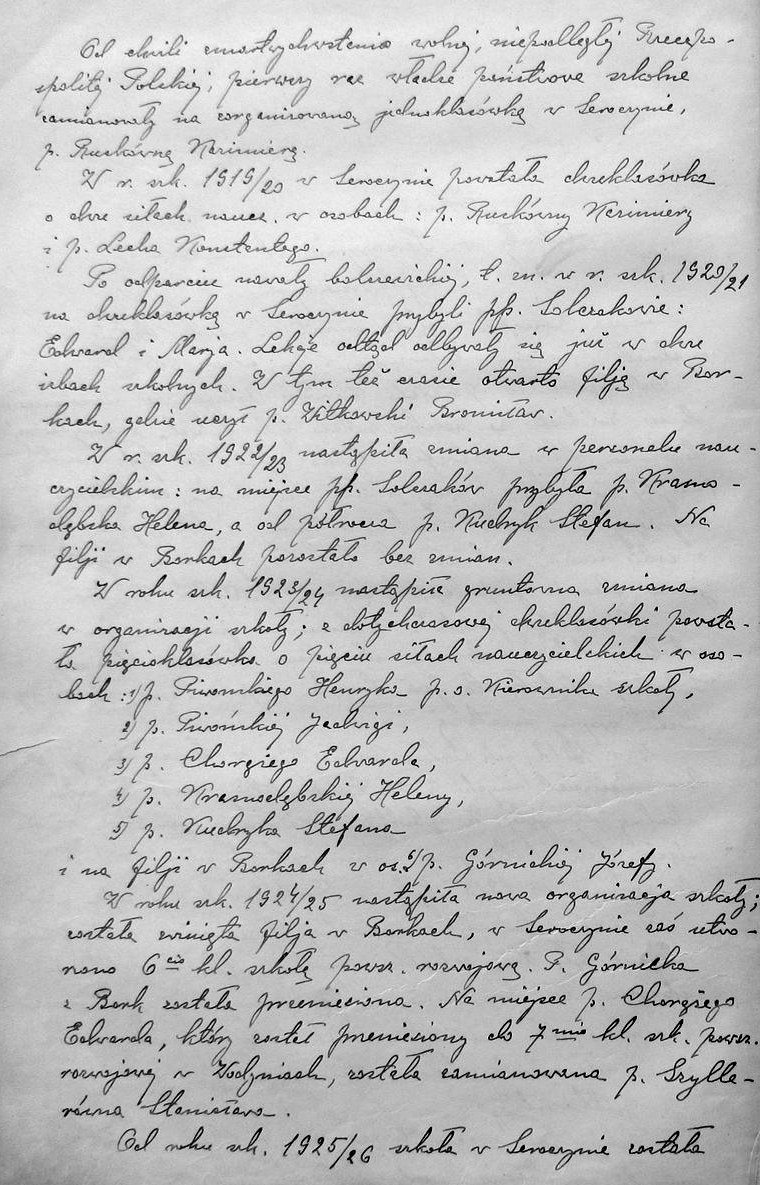 Od chwili zmartwychwstania wolnej, niepodległej Rzeczpo-
spolitej Polskiej, pierwszy raz władze państwowe szkolne
zamianowały na zorganizowaną jednoklasówkę w Seroczynie,
p. Ruskównę Kazimierę.
W r. szk. 1919/20 w Seroczynie powstała dwuklasówka
o dwu siłach naucz. w osobach : p. Ruskówny Kazimiery
i p. Lecha Konstantego.
Po odparciu nawały bolszewickiej, t. zn. w r. szk. 1920/21
na dwuklasówkę w Seroczynie przybyli pp. Solczakowie :
Edward i Marja. Lekcje odtąd odbywały się już w dwu
izbach szkolnych. W tym też czasie otwarto filję w Bor-
kach, gdzie uczył p. Witkowski Bronisław.
W r. szk. 1922/23 nastąpiła zmiana w personelu nau-
czycielskim : na miejsce pp. Solczaków przybyła p. Krasno-
dębska Helena, a od półrocza p. Kudzyk Stefan. Na
filji w Borkach pozostało bez zmian.
W roku szk. 1923/24 nastąpiła gruntowna zmiana
w organizacji szkoły ; z dotychczasowej dwuklasówki powsta-
ła pięcioklasówka o pięciu siłach nauczycielskich w oso-
bach : 1) p. Piwońskiego Henryka p. o. Kierownika szkoły,
2) p. Piwońskiej Jadwigi,
3) p. Chorążego Edwarda,
4) p. Krasnodębskiej Heleny,
5) p. Kudzyka Stefana
i na filji w Borkach w os. 6) p. Górnickiej Józefy.
W roku szk. 1924/25 nastąpiła nowa organizacja szkoły ;
została zwinięta filja w Borkach, w Seroczynie zaś utwo-
rzono 6 cio kl. szkołę powsz. rozwojową. P. Górnicka
z Bork została przeniesiona. Na miejsce p. Chorążego
Edwarda, który został przeniesiony do 7 mio kl. szk. powsz.
rozwojowej w Wodyniach, została zamianowana p. Szylle-
równa Stanisława.
Od roku szk. 1925/26 szkoła w Seroczynie została